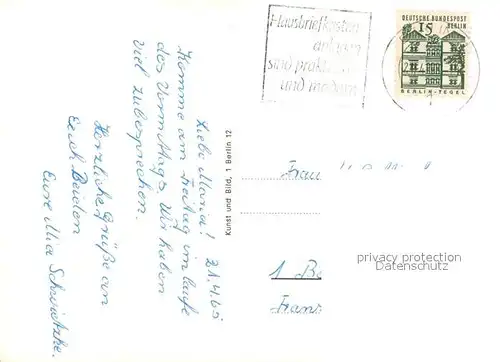 Hausbriefkasten
anlagen
sind prakt
und modern
DEUTSCHE BUNDESPOST
BERLIN
15
BERLIN-TEGEL
Liebe Maria! 21.4.65
Komme am Freitag im laufe
des Vormittags. Wir haben
viel zubesprechen.
Herzliche Grüße an
Euch Beiden
Eure Mia
Kunst und Bild, 1 Berlin 12
Frau
1 Be
Franz
privacy protection
Datenschutz